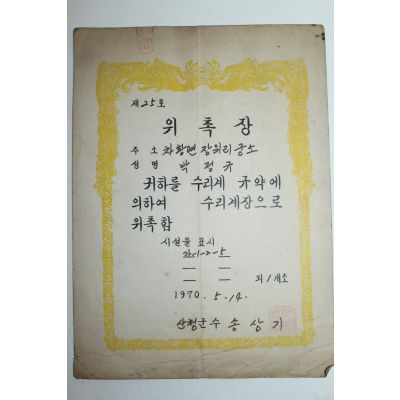 제 25호
위촉장
주소 차황면 장위리 궁소
성명 박정규
귀하를 수리계 규약에
의하여 수리계장으로
위촉함
시설물 표시
외 1개소
1970. 5. 14.
산청군수 송상기